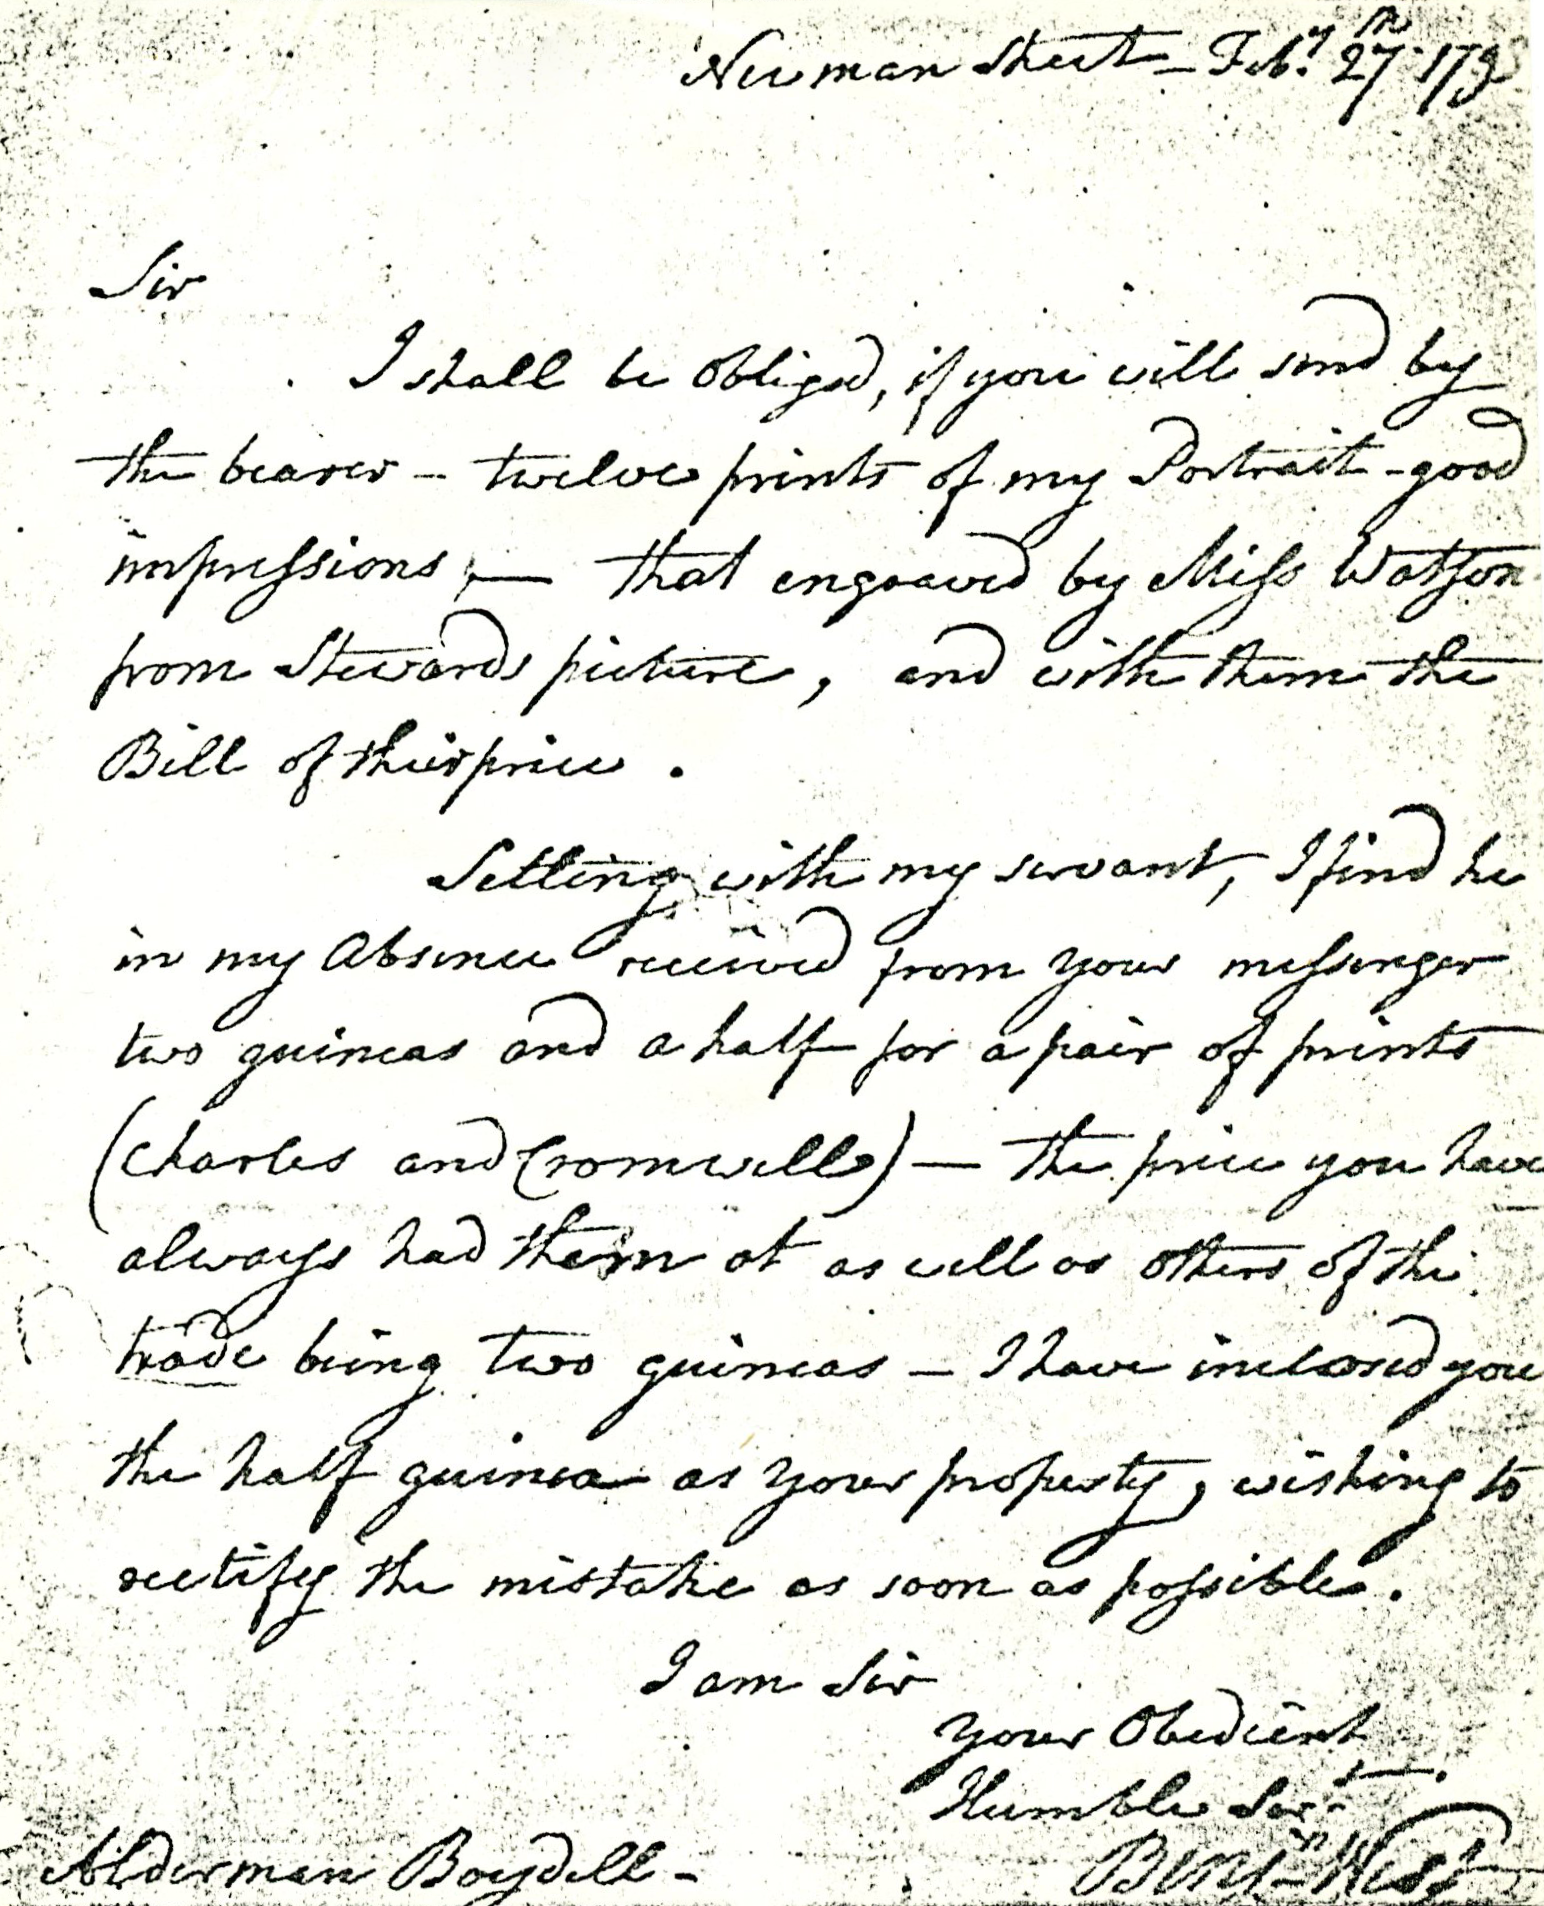 Newman Street – Feby. 27th 179
Sir
I shall be Obliged, if you will send by
the bearer – twelve prints of my Portrait – good
impressions, — that engraved by Miss Watson
from Stewards picture, and with them the
Bill of their price.
Setling with my servant, I find he
in my Absence received from your messenger
two guineas and a half for a pair of prints
(Charles and Cromwell) — the price you have
always had them at as well as others of the
trade being two guineas – I have inclosed you
the half guinea as your property, wishing to
rectify the mistake as soon as possible.
I am Sir
your Obedient
Humble Sert.
Benjn West
Alderman Boydell –